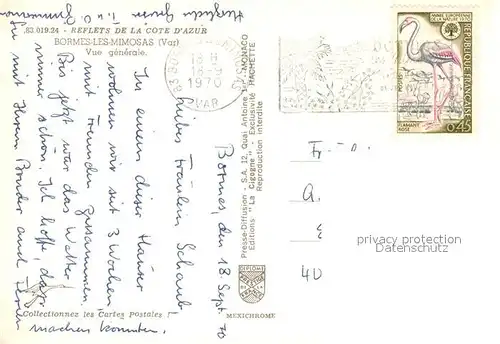 83.019.24 - REFLETS DE LA CÔTE D'AZUR
BORMES-LES-MIMOSAS (Var)
Vue générale.
Bormes, den 18. Sept. 70
Liebes Fräulein Schaub!
In einem dieser Häuser
wohnen wir seit 3 Wochen
mit Freunden zusammen.
Bis jetzt war das Wetter
immer schön. Ich hoffe, dass
Sie mit Ihrem Bruder auch Ferien
machen konnten.
Herzliche Grüsse
Collectionnez les Cartes Postales !
Presse-Diffusion - S.A. 12, Quai Antoine 1er - MONACO
Editions "La Cigogne" - Exclusivité HACHETTE
Reproduction interdite
MEXICHROME
1970
VAR
ANNÉE EUROPÉENNE
DE LA NATURE 1970
REPUBLIQUE FRANÇAISE
POSTES
FLAMANT
ROSE
0,45
privacy protection
Datenschutz